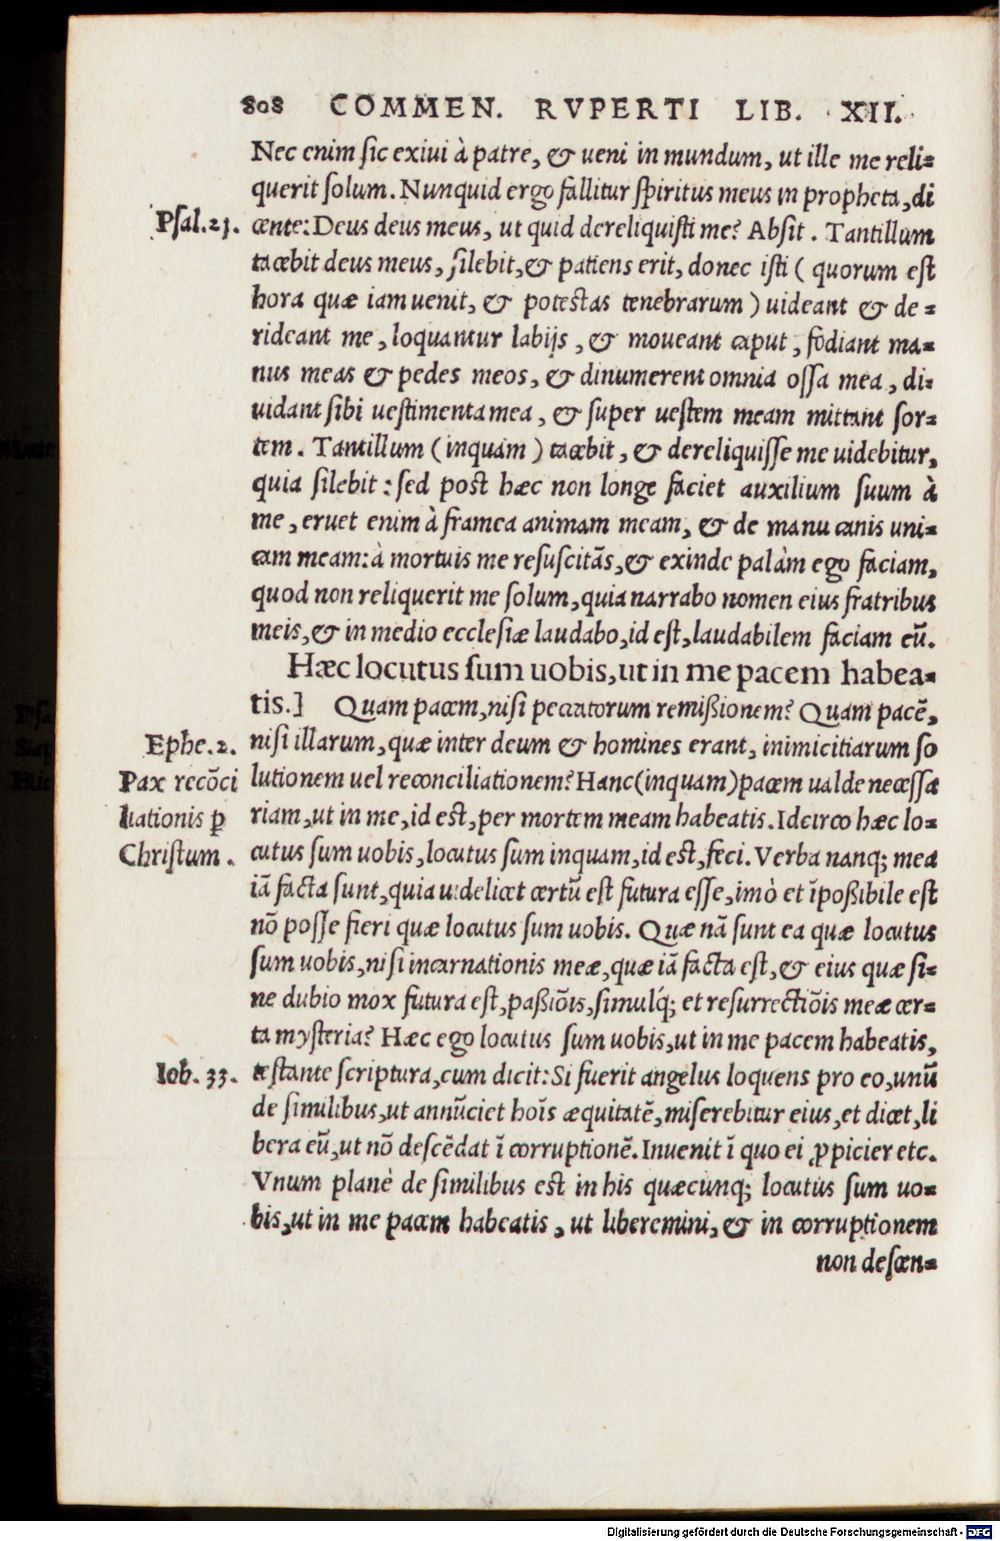 808 COMMEN. RVPERTI LIB. XII.
Nec enim sic exiui à patre, & ueni in mundum, ut ille me reli-
querit solum. Nunquid ergo fallitur spiritus meus in propheta, di
Psal.21. cente: Deus deus meus, ut quid dereliquisti me? Absit. Tantillum
tacebit deus meus, silebit, & patiens erit, donec isti (quorum est
hora quæ iam uenit, & potestas tenebrarum) uideant & de-
rideant me, loquantur labijs, & moueant caput, fodiant ma-
nus meas & pedes meos, & dinumerent omnia ossa mea, di-
uidant sibi uestimenta mea, & super uestem meam mittant sor-
tem. Tantillum (inquam) tacebit, & dereliquisse me uidebitur,
quia silebit: sed post hæc non longe faciet auxilium suum à
me, eruet enim à framea animam meam, & de manu canis uni-
cam meam: à mortuis me resuscitãs, & exinde palàm ego faciam,
quod non reliquerit me solum, quia narrabo nomen eius fratribus
meis, & in medio ecclesiæ laudabo, id est, laudabilem faciam eũ.
Hæc locutus sum uobis, ut in me pacem habea-
tis.] Quam pacem, nisi peccatorum remißionem? Quam pacẽ,
Ephe.2. nisi illarum, quæ inter deum & homines erant, inimicitiarum so
Pax recõci lutionem uel reconciliationem? Hanc (inquam) pacem ualde necessa
liationis ꝑ riam, ut in me, id est, per mortem meam habeatis. Idcirco hæc lo-
Christum. cutus sum uobis, locutus sum inquam, id est, feci. Verba nanq; mea
iã facta sunt, quia uidelicet certũ est futura esse, imò et ĩpoßibile est
nõ posse fieri quæ locutus sum uobis. Quæ nã sunt ea quæ locutus
sum uobis, nisi incarnationis meæ, quæ iã facta est, & eius quæ si-
ne dubio mox futura est, paßiõis, simulq́; et resurrectiõis meæ cer-
ta mysteria? Hæc ego locutus sum uobis, ut in me pacem habeatis,
Iob.33. testante scriptura, cum dicit: Si fuerit angelus loquens pro eo, unũ
de similibus, ut annũciet hoĩs æquitatẽ, miserebitur eius, et dicet, li
bera eũ, ut nõ descẽdat ĩ corruptionẽ. Inuenit ĩ quo ei ꝓpicier etc.
Vnum planè de similibus est in his quæcunq; locutus sum uo-
bis, ut in me pacem habeatis, ut liberemini, & in corruptionem
non descen-
Digitalisierung gefördert durch die Deutsche Forschungsgemeinschaft - DFG